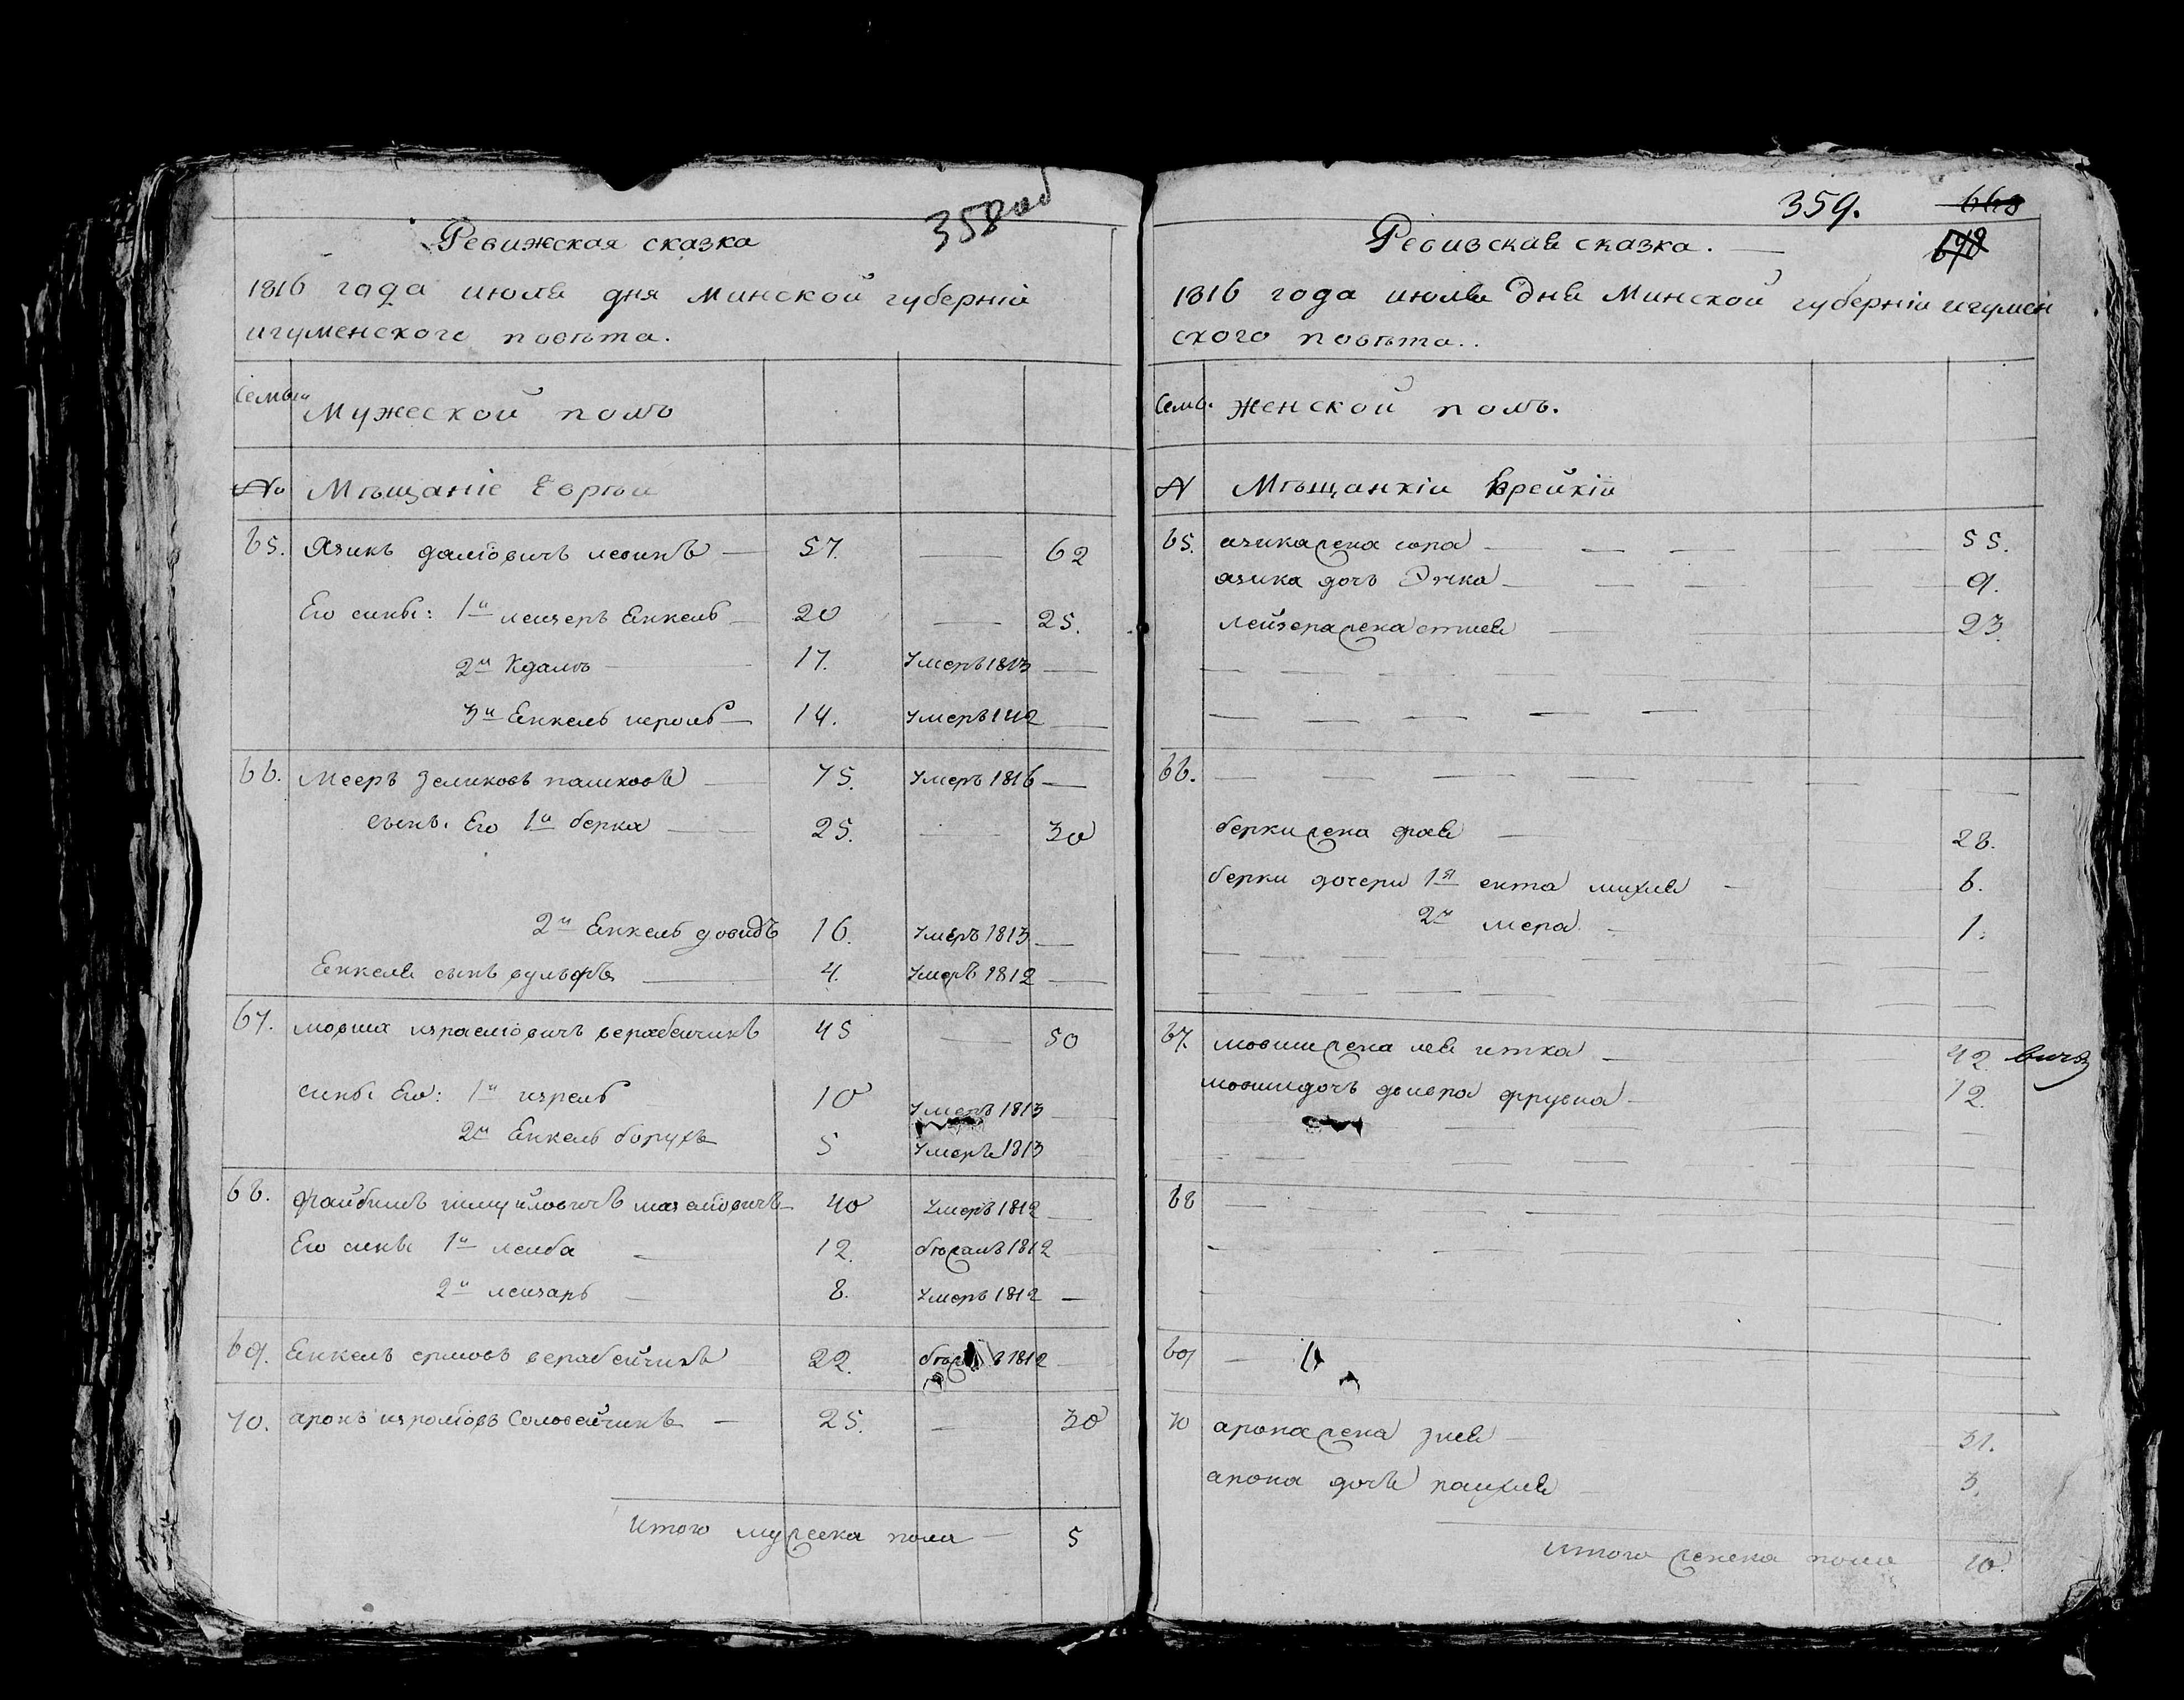 358 об
Ревижская сказка
1816 года июля дня Минской губерніи
игуменского повѣта.
Семьи Мужеской полъ
№ Мѣщаніе Евреи
65. Язикъ давыдовичъ левинъ — 57. — 62
Его сины: 1й лейзеръ Енкель — 20 — 25.
2й — 17. Умеръ 1813 —
3й Енкель — 14. Умеръ 1812 —
66. Мееръ зеликовъ пашковъ — 75. Умеръ 1816 —
сынъ Его 1й берка — 25. — 30
2й Енкель довидъ 16. Умеръ 1813 —
Енкеля сынъ вульфъ — 4. Умеръ 1812 —
67. мовша израелiовичъ верабейчикъ 45 — 50
сины Его: 1й израель 10 Умеръ 1813 —
2й Енкель борухъ 5 Умеръ 1813
68. файбишъ шмуйловичъ 40 Умеръ 1812 —
Его сины 1й лейба — 12. бѣжалъ 1812
2й лейзаръ — 8. Умеръ 1812 —
69. Енкель верабейчикъ 22. 1812
70. аронъ Соловейчикъ — 25. — 30
Итого мужеска пола — 5
359. 668
Ревизская сказка. —
1816 года июля дня Минской губерніи игумен
ского повѣта..
Семь. Женской полъ.
№ Мѣщанкіи Еврейкіи
65. азика жена сора — 55.
азика дочь Эткa — 9.
лейзера жена — 23.
66.
берки жена — 28.
берки дочери 1я михля — 6.
2я мера — 1.
67. мовши жена лея итка — 42.
мовши дочь двейра фрузна — 12.
68
69
70 арона жена злея — 31.
арона дочь рашля 3.
Итого женска пола 10.